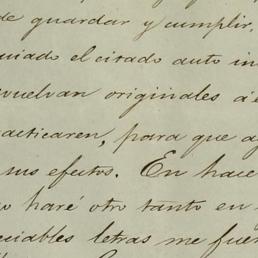 de guardar y cumplir.
uiado el citado auto in
vuelvan originales á e
acticaren, para que a
sus efectos. En hace
o haré otro tanto en
ciables letras me fuer